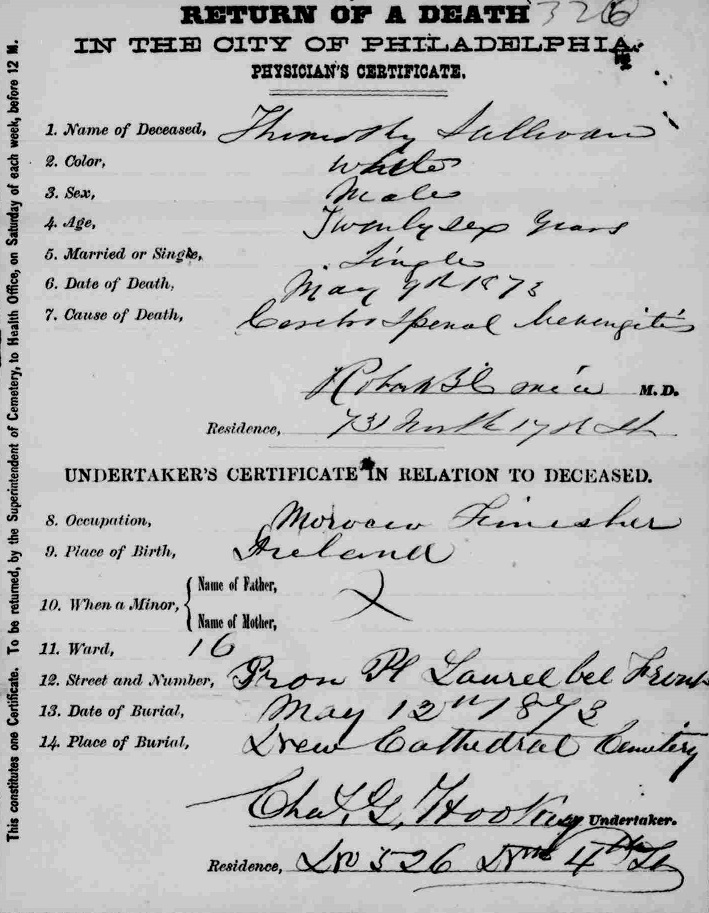 RETURN OF A DEATH 326
IN THE CITY OF PHILADELPHIA.
PHYSICIAN'S CERTIFICATE.
1. Name of Deceased, Thimothy Sullivan
2. Color, White
3. Sex, Male
4. Age, Twenty sex Years
5. Married or Single, Single
6. Date of Death, May 9th 1873
7. Cause of Death, Cerebro Spenal Menengitis
M.D.
Residence, 731 North 17th St
UNDERTAKER'S CERTIFICATE IN RELATION TO DECEASED.
8. Occupation, Morocco Finesher
9. Place of Birth, Ireland
10. When a Minor, { Name of Father,
Name of Mother, X
11. Ward, 16
12. Street and Number, Pl Laurel bel Front
13. Date of Burial, May 12th 1873
14. Place of Burial, New Cathedral Cemetery
Chas. G. Hookey Undertaker.
Residence, No 526 4th St
This constitutes one Certificate. To be returned, by the Superintendent of Cemetery, to Health Office, on Saturday of each week, before 12 M.